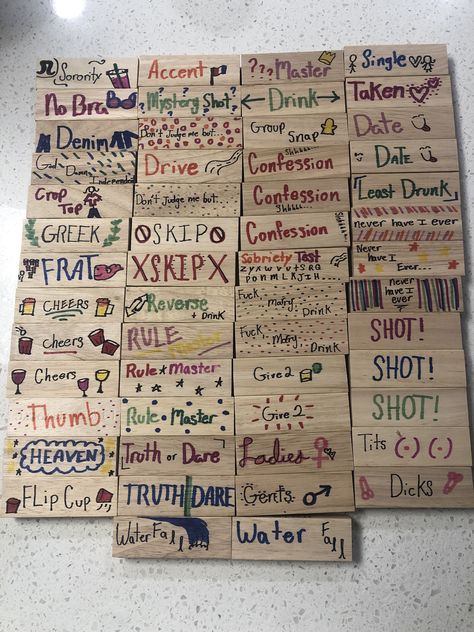 Sorority
No Bra
Denim
God Damn
Independent
Crop
Top
GREEK
FRAT
CHEERS
Cheers
Cheers
Thumb
HEAVEN
FLip Cup
Water Fall
Accent
?Mystery Shot?
Don't Judge me but...
Drive
Don't Judge me but...
SKIP
XSKIPX
Reverse
+ Drink
RULE
Master
Rule Master
Rule Master
Truth or Dare
TRUTH DARE
??? Master
Drink
Group
Snap
Shhhh
Confession
Confession
Shhhh
Confession
Sobriety Test
ZYXWVUTSRQ
PONMLKJIH...
Fuck, Marry, Drink
Fuck, Marry, Drink
Give 2
Give 2
Ladies
Gents
Water Fall
Single
Taken
Date
DATE
Least Drunk
never have I ever
Never
have I
Ever...
never
have I
ever
SHOT!
SHOT!
SHOT!
Tits (·) (·)
Dicks